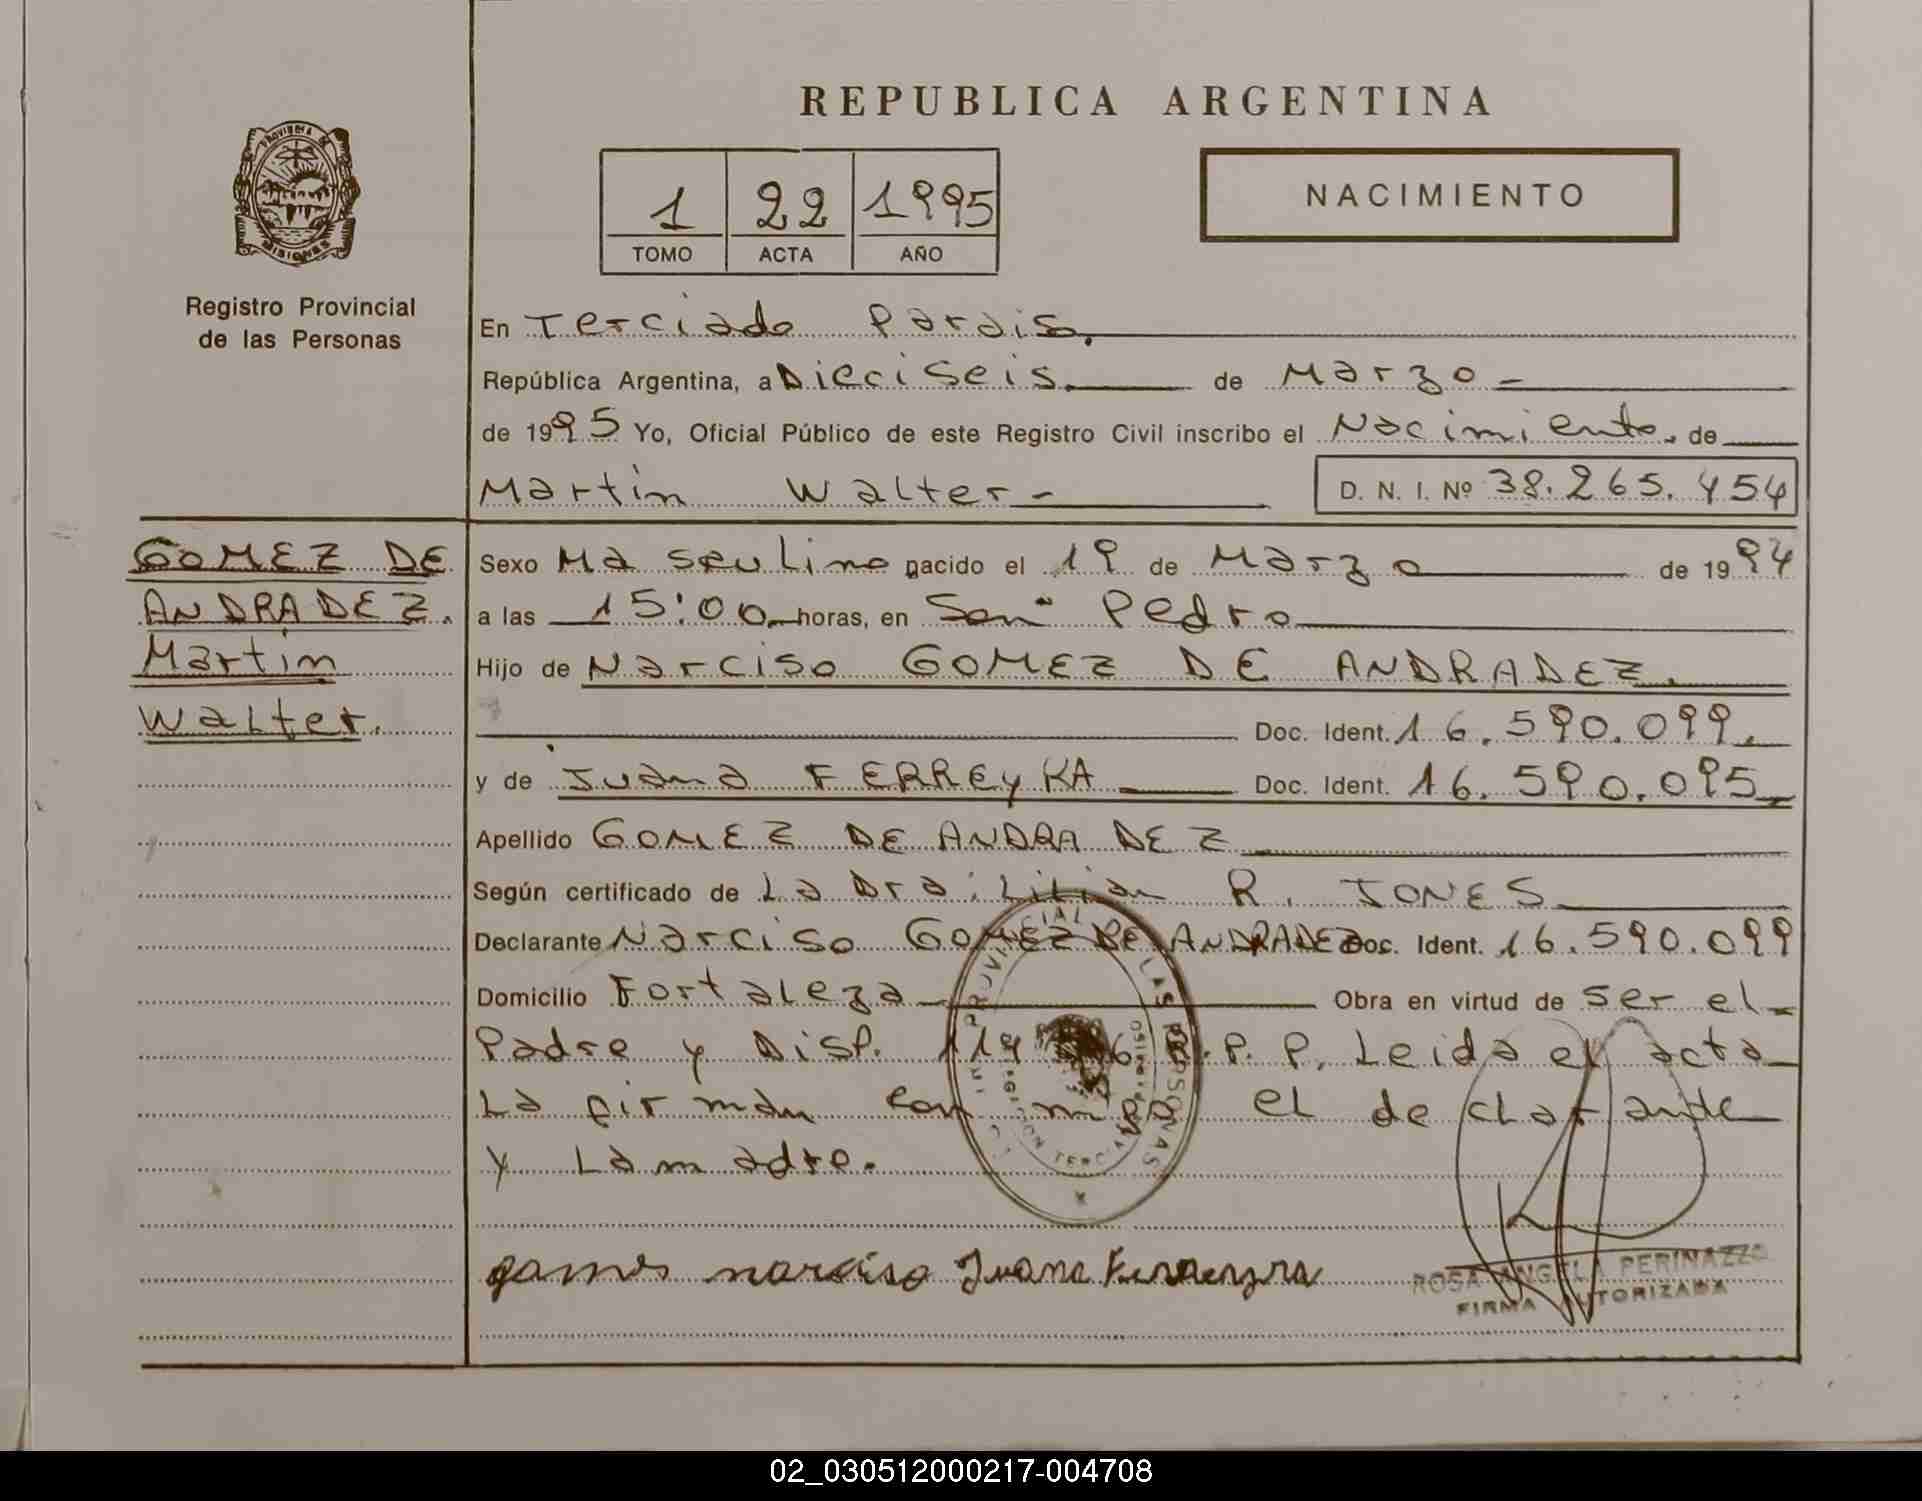 REPUBLICA ARGENTINA
PROVINCIA DE
MISIONES
Registro Provincial
de las Personas
1 22 1995
TOMO ACTA AÑO
NACIMIENTO
En Terciado Parais.
República Argentina, a Dieciseis de Marzo
de 1995 Yo, Oficial Público de este Registro Civil inscribo el Nacimiento de
Martin Walter D. N. I. Nº 38.265.454
GOMEZ DE
ANDRADEZ.
Martin
Walter.
Sexo Masculino nacido el 19 de Marzo de 1994
a las 15:00 horas, en San Pedro
Hijo de Narciso GOMEZ DE ANDRADEZ.
Doc. Ident. 16.590.099.
y de Juana FERREyRA Doc. Ident. 16.590.095
Apellido GOMEZ DE ANDRADEZ
Según certificado de La Dra: Lilian R. JONES
Declarante Narciso GOMEZ DE ANDRADEZ Doc. Ident. 16.590.099
Domicilio Fortaleza Obra en virtud de ser el
Padre y Disp. P. P. Leida el acta
La firman con migo el declarante
y La madre.
narciso Juana Ferreyra
ROSA ANGELA PERINAZZO
FIRMA AUTORIZADA
02_030512000217-004708